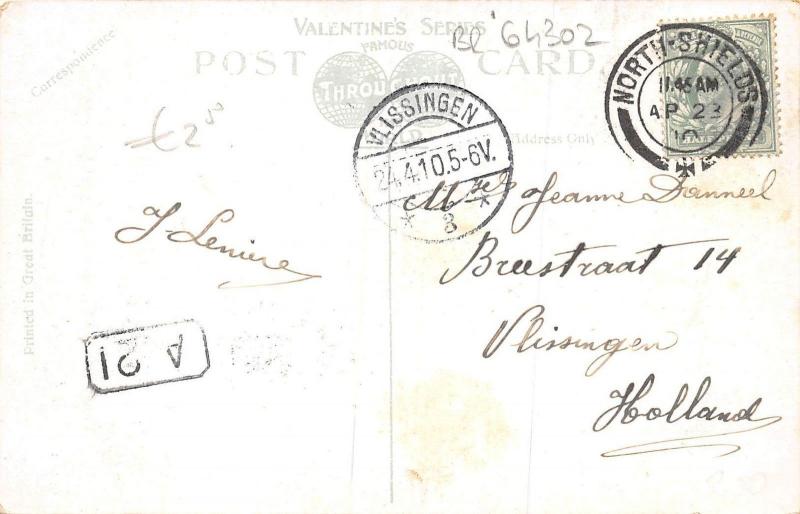 VALENTINE'S SERIES
FAMOUS
POST CARD
THROUGHOUT
Correspondence
Address Only
BL 64302
NORTH-SHIELDS
11.45 AM
AP 23
10
HALF
VLISSINGEN
24.4.10.5-6V.
* 3 *
€ 2
Melle Jeanne Danneel
Breestraat 14
Vlissingen
Holland
A 21
Printed in Great Britain.